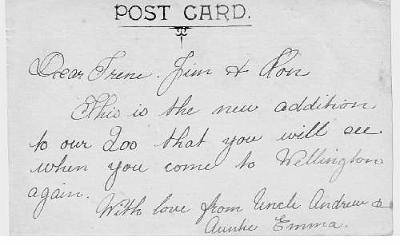 POST CARD.
Dear Irene. Jim & Ron
This is the new addition
to our Zoo that you will see
when you come to Wellington
again.
With love from Uncle Andrew &
Auntie Emma.